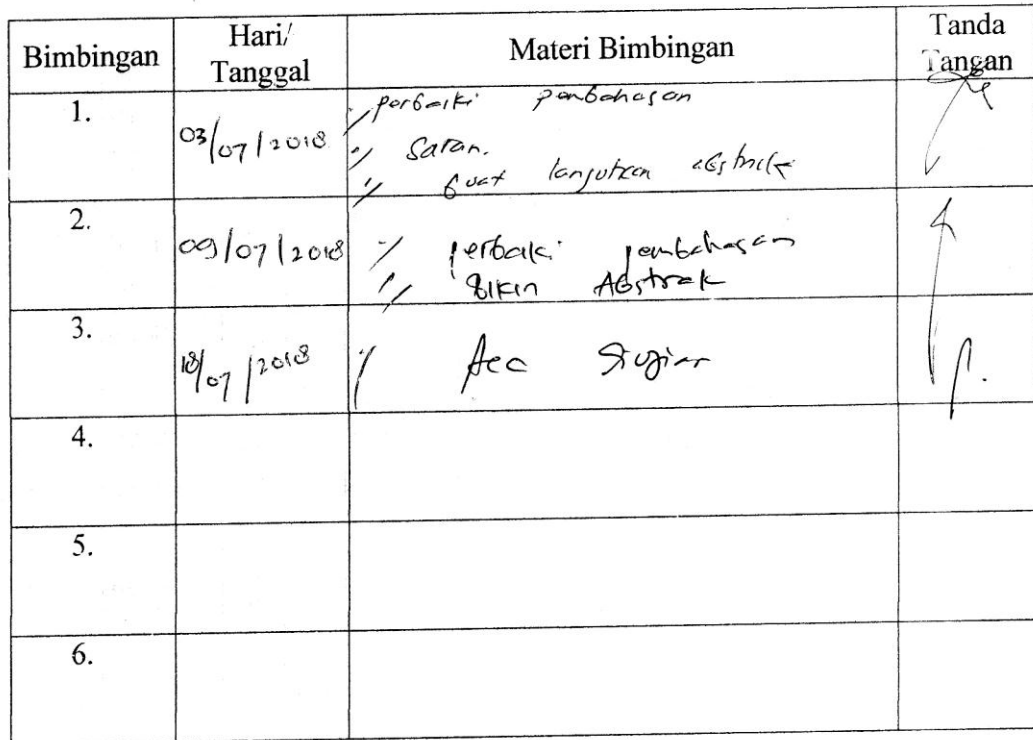 Bimbingan Hari/ Tanggal Materi Bimbingan Tanda Tangan
1. 03/07/2018 perbaiki pembahasan
saran.
buat lanjutkan abstrak
2. 09/07/2018 perbaiki pembahasan
Bikin Abstrak
3. 18/07/2018 Acc
4.
5.
6.